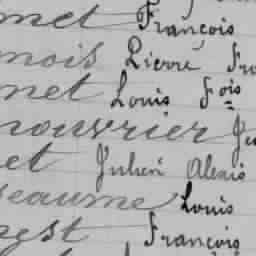 met François
mois Pierre Fr
met Louis Fois
nouvrier Ju
et Julien Alexis
eaume Louis
nest François